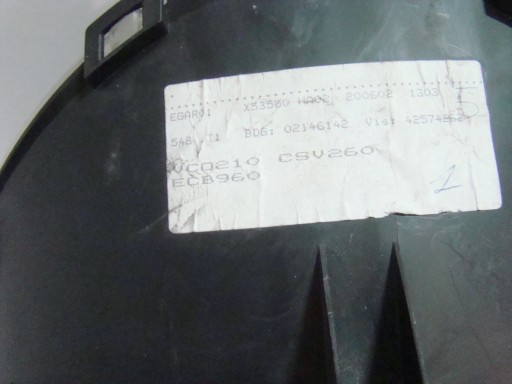 EGAR01 X53580 200602 1303
548 T1 BDG: 02146142 Vis:
VCQ210 CSV260
ECB960
1